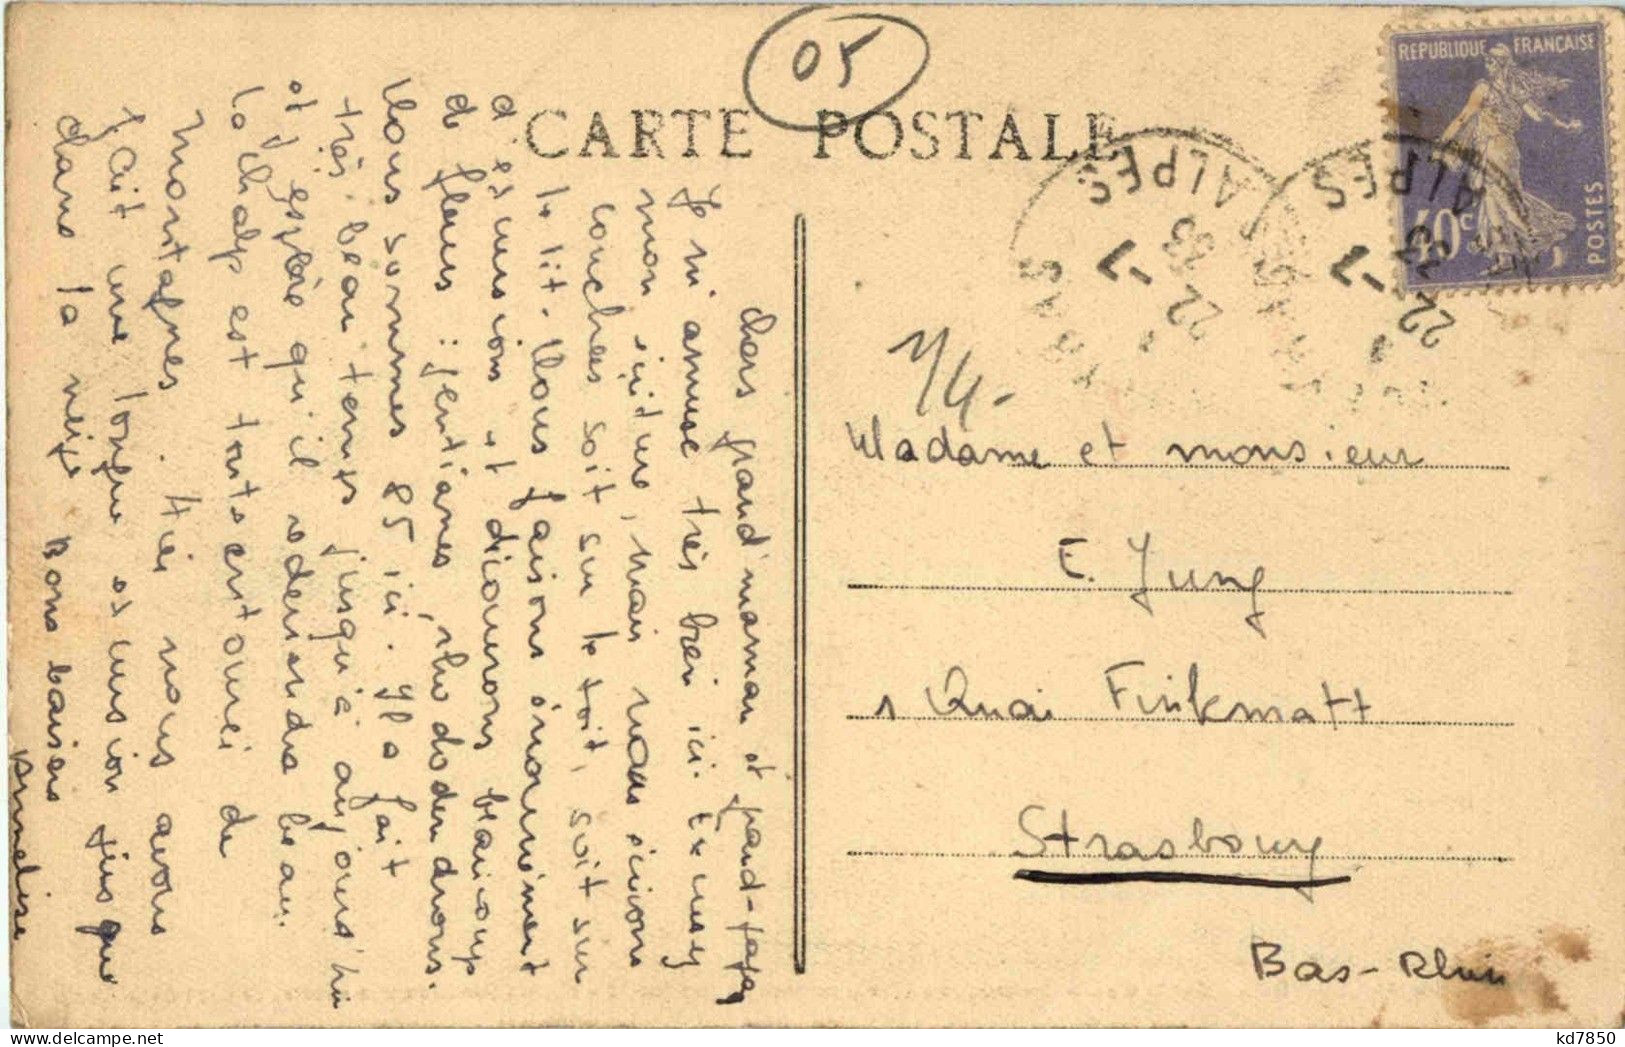 05
CARTE POSTALE
REPUBLIQUE FRANÇAISE
40c
POSTES
ALPES
22 -7
33
ALPES
22 -7
33
1/4-
Chers grand'maman et grand-papa
Je m'amuse très bien ici. Excusez
mon écriture, mais nous écrivons
couchées soit sur le toit, soit sur
le lit. Nous faisons énormément
d'escursions et découvrons beaucoup
de fleurs : gentianes, rhododendrons.
Nous sommes 85 ici. Il a fait
très beau temps jusqu'à aujourd'hui
et j'espère qu'il redeviendra beau.
Le chalet est tout entouré de
montagnes. Hier nous avons
fait une longue escursion jusque
dans la neige Bons baisers
Annelise
Madame et monsieur
E. Jung
1 Quai Finkmatt
Strasbourg
Bas-Rhin
kd7850